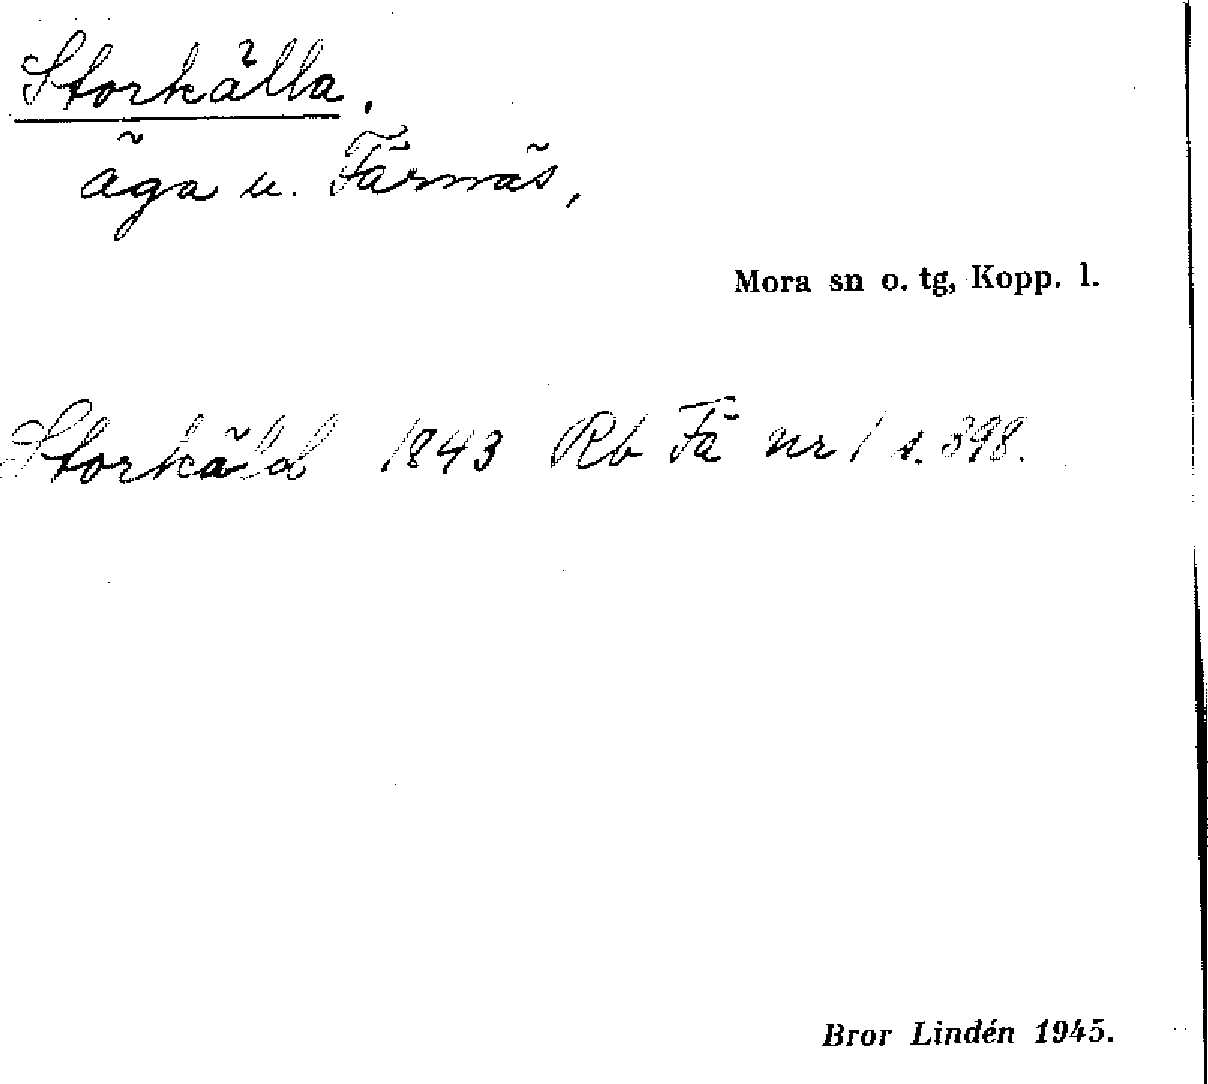 Storkälla.
äga u. Färnäs,
Mora sn o. tg, Kopp. l.
Storkäld 1843 Rb Fä nr 1 s. 398.
Bror Lindén 1945.